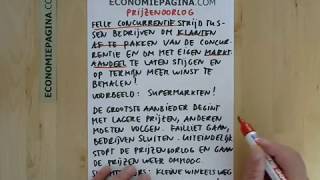 ECONOMIEPAGINA.COM
PRIJZENOORLOG
FELLE CONCURRENTIESTRIJD TUS-
SEN BEDRIJVEN OM KLANTEN
AF TE PAKKEN VAN DE CONCUR-
RENTIE EN OM HET EIGEN MARKT
AANDEEL TE LATEN STIJGEN EN
OP TERMIJN MEER WINST TE
BEHALEN!
VOORBEELD: SUPERMARKTEN!
DE GROOTSTE AANBIEDER BEGINT
MET LAGERE PRIJZEN, ANDEREN
MOETEN VOLGEN. FAILLIET GAAN,
BEDRIJVEN SLUITEN. UITEINDELIJK
STOPT DE PRIJZENOORLOG EN GAAN
DE PRIJZEN WEER OMHOOG.
KLEINE WINKELS WEG
ECONOMIEPAGINA.COM